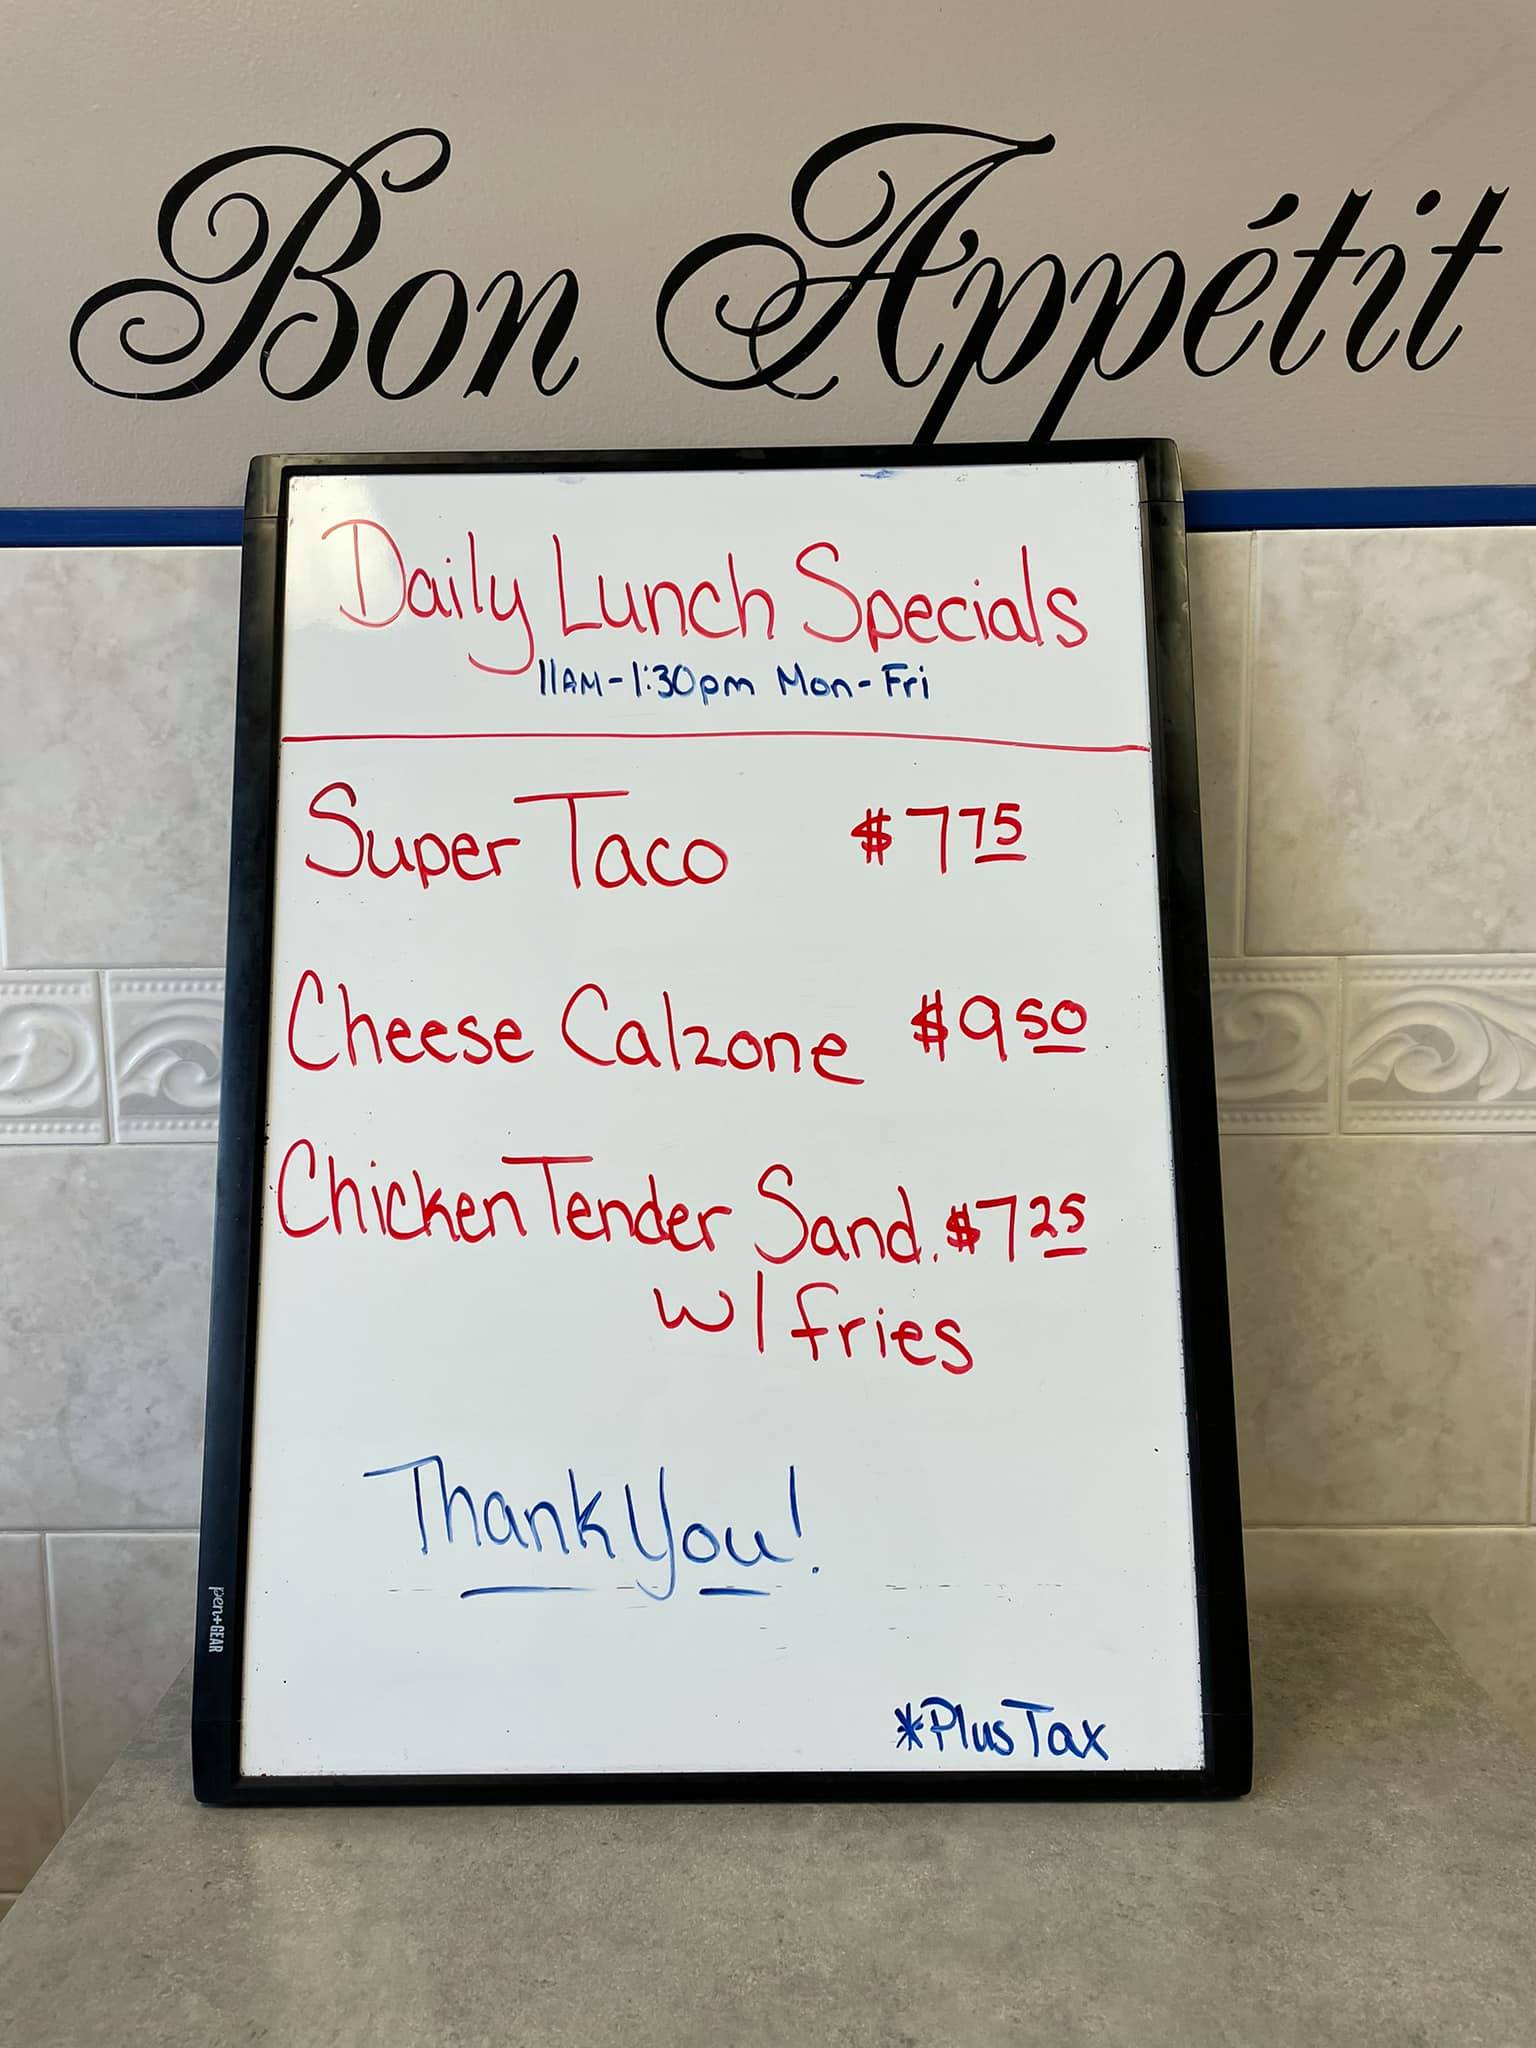 Bon Appétit
Daily Lunch Specials
11AM-1:30pm Mon-Fri
Super Taco $7 75
Cheese Calzone $9 50
Chicken Tender Sand. $7 25
w/fries
Thank You!
pen+GEAR
*Plus Tax